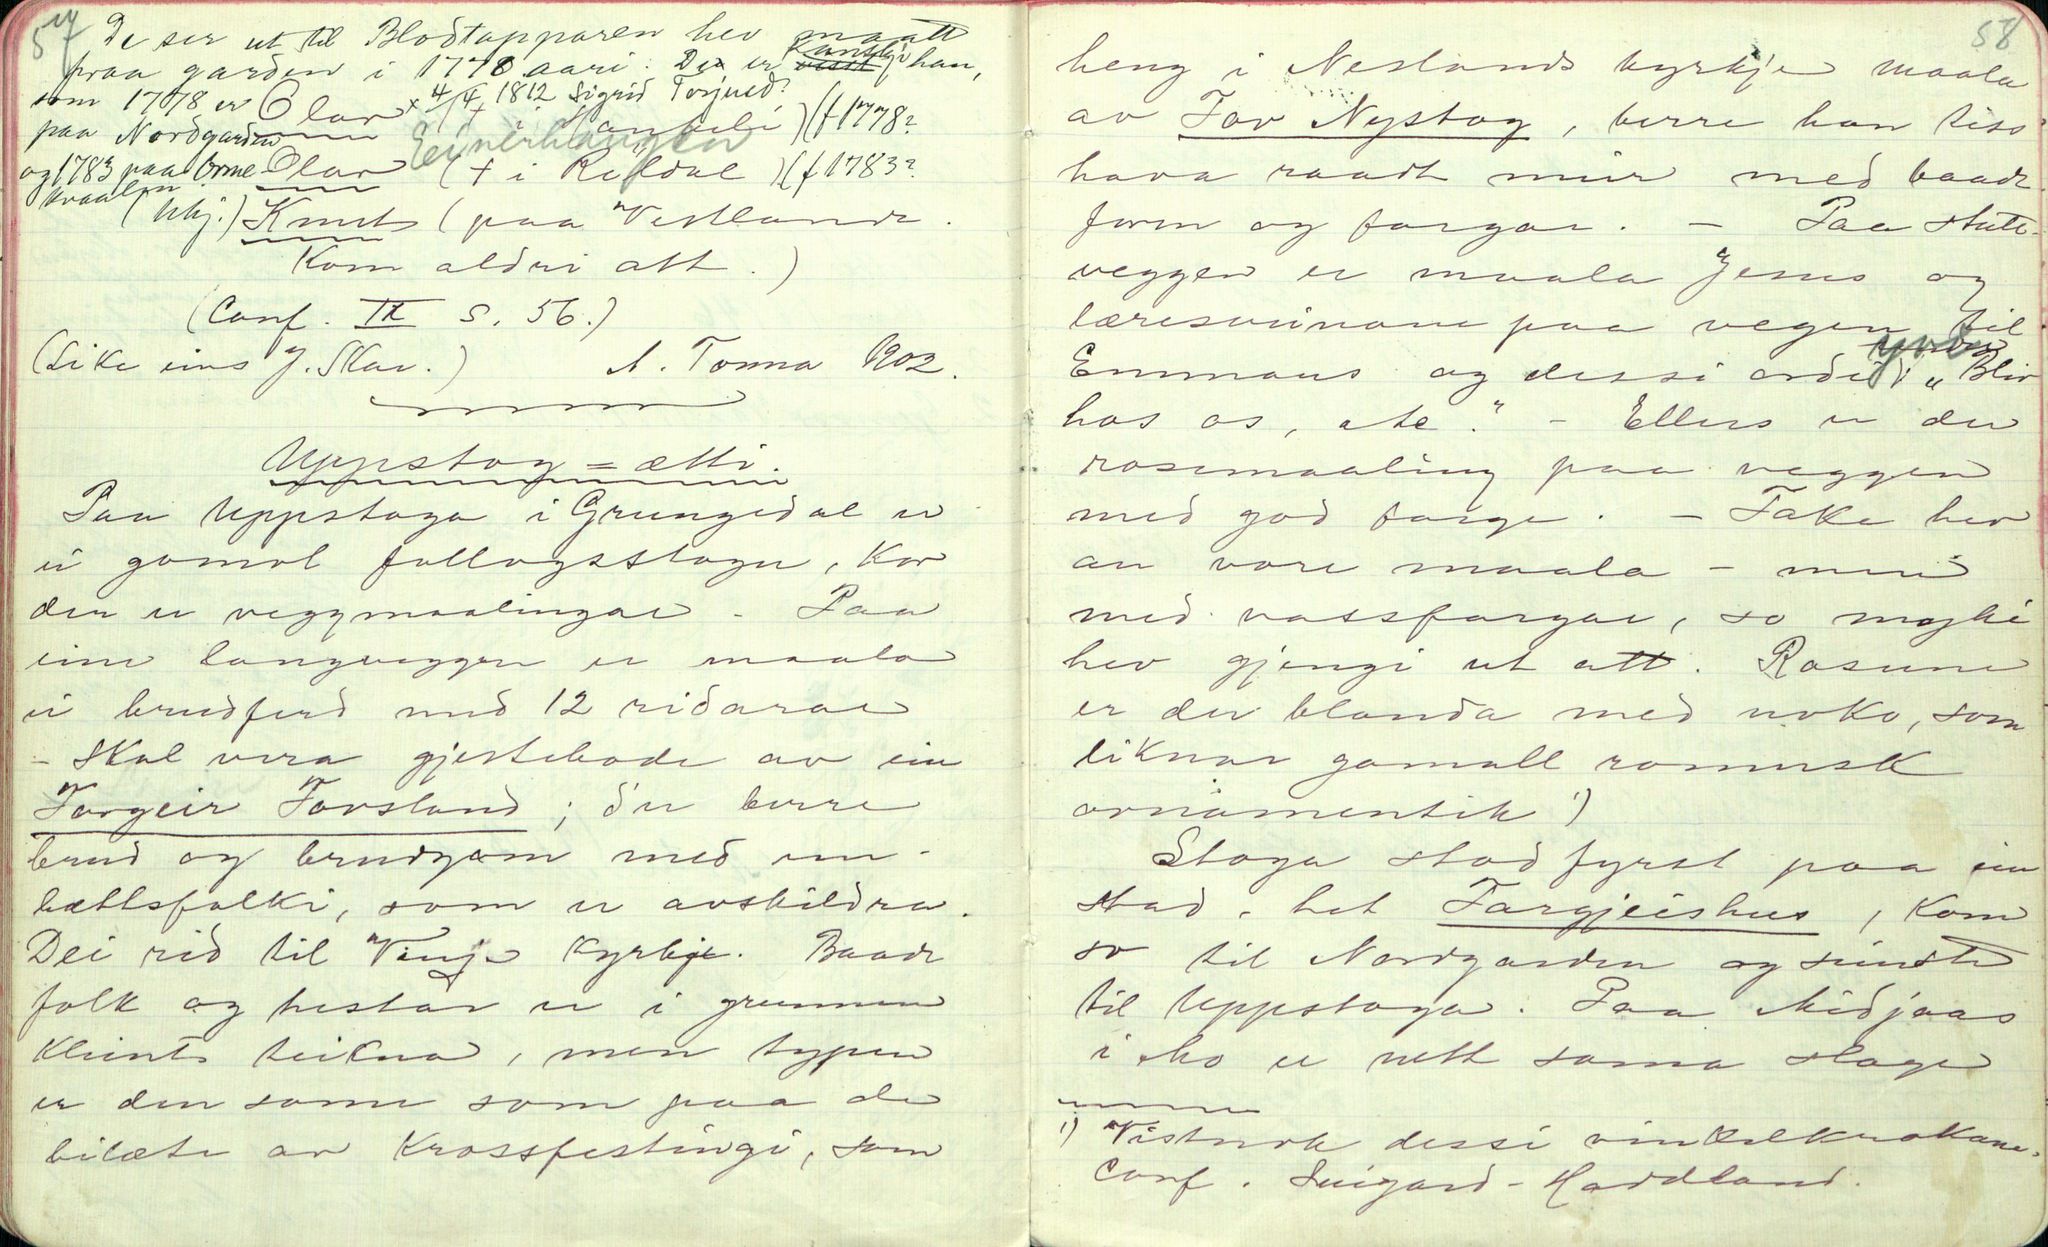 57
De ser ut til Blodtapparen hev maatt
fraa garden i 1778 aari. De er visst Kanskje han,
som 1778 er Olav x 4/4 1812 Sigrid Torjusd.?
paa Nordgarden († i Haukeli) († 1778?
Einerhaugen
og 1783 paa Orme- Olav († i Røldal) († 1783?
kraaen
(Ukj.) Knut (paa Vestlande.
Kom aldri att.)
(Conf. IX s. 56.)
(Like eins J. Skar.) A. Tonna 1902.
Uppstog-ætti.
Paa Uppstoga i Grungedal er
ei gamol fellogsstoge, kor
der er veggmaalingar - Paa
eine langveggen er maala
ei brudferd med 12 ridarar
- skal vera gjestebode av ein
Torgeir Tovsland; d'er berre
brud og brudgom med em-
bættsfolki, som er avskildra.
Dei rid til Vinje kyrkje. Baade
folk og hestar er i grunnen
kleint teikna, men typen
er den same som paa de
bilæte av Krossfestingi, som
58
heng i Neslands kyrkje maala
av Tov Nystog, berre han tess
hava raadt meir med baade
form og fargar. - Paa stute-
veggen er maala Jesus og
læresveinane paa vegen til
Emmaus og dessi ordi yver: "Bliv
hos os, etc." - Ellers er der
rosemaaling paa veggen
med god farge. - Take hev
au vore maala - men
med vassfargar, so mykje
hev gjengi ut att. Rosune
er der blanda med noko, som
liknar gamall romersk
ornamentik 1)
Stoga stod fyrst paa ein
stad, het Targjeishus, kom
so til Nordgarden og seinste
til Uppstoga. Paa Midjaas
i Mo er nett sama stoge
1) Vistnok dessi vinkelkrokane.
Conf. Suigard - Haddland.